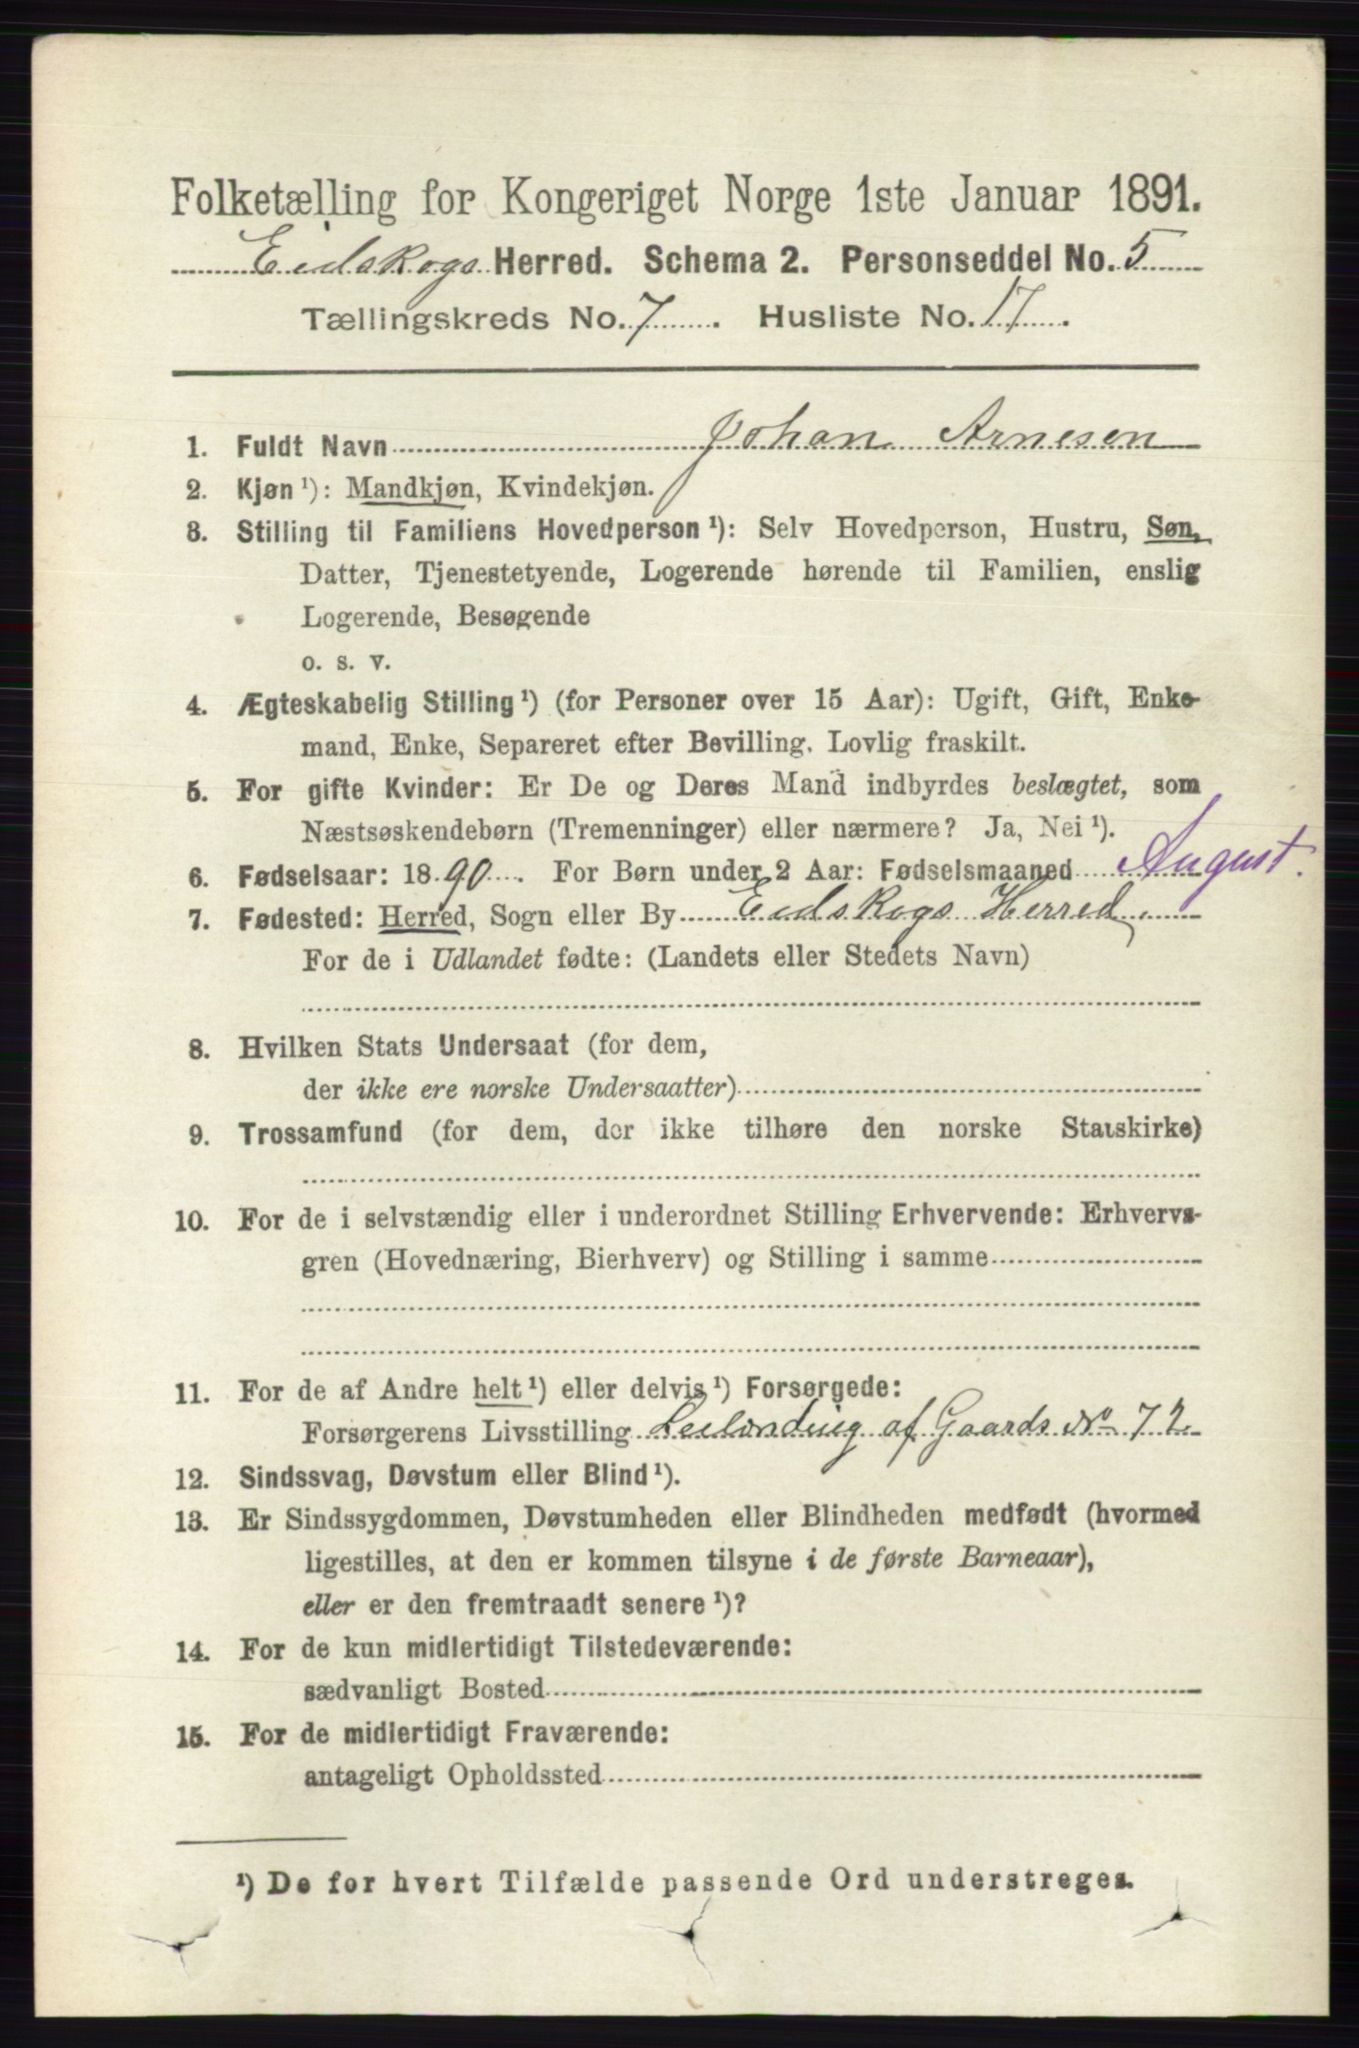 Folketælling for Kongeriget Norge 1ste Januar 1891.
Eidskogs Herred. Schema 2. Personseddel No. 5
Tællingskreds No. 7. Husliste No. 17.
1. Fuldt Navn Johan Arnesen
2. Kjøn ¹): Mandkjøn, Kvindekjøn.
3. Stilling til Familiens Hovedperson ¹): Selv Hovedperson, Hustru, Søn,
Datter, Tjenestetyende, Logerende hørende til Familien, enslig
Logerende, Besøgende
o. s. v.
4. Ægteskabelig Stilling ¹) (for Personer over 15 Aar): Ugift, Gift, Enke-
mand, Enke, Separeret efter Bevilling. Lovlig fraskilt.
5. For gifte Kvinder: Er De og Deres Mand indbyrdes beslægtet, som
Næstsøskendebørn (Tremenninger) eller nærmere? Ja, Nei ¹).
6. Fødselsaar: 1890. For Børn under 2 Aar: Fødselsmaaned August.
7. Fødested: Herred, Sogn eller By Eidskogs Herred.
For de i Udlandet fødte: (Landets eller Stedets Navn)
8. Hvilken Stats Undersaat (for dem,
der ikke ere norske Undersaatter)
9. Trossamfund (for dem, der ikke tilhøre den norske Statskirke)
10. For de i selvstændig eller i underordnet Stilling Erhvervende: Erhvervs-
gren (Hovednæring, Bierhverv) og Stilling i samme
11. For de af Andre helt ¹) eller delvis ¹) Forsørgede:
Forsørgerens Livsstilling Leilænding af Gaards No 72
12. Sindssvag, Døvstum eller Blind ¹).
13. Er Sindssygdommen, Døvstumheden eller Blindheden medfødt (hvormed
ligestilles, at den er kommen tilsyne i de første Barneaar),
eller er den fremtraadt senere ¹)?
14. For de kun midlertidigt Tilstedeværende:
sædvanligt Bosted
15. For de midlertidigt Fraværende:
antageligt Opholdssted
¹) De for hvert Tilfælde passende Ord understreges.